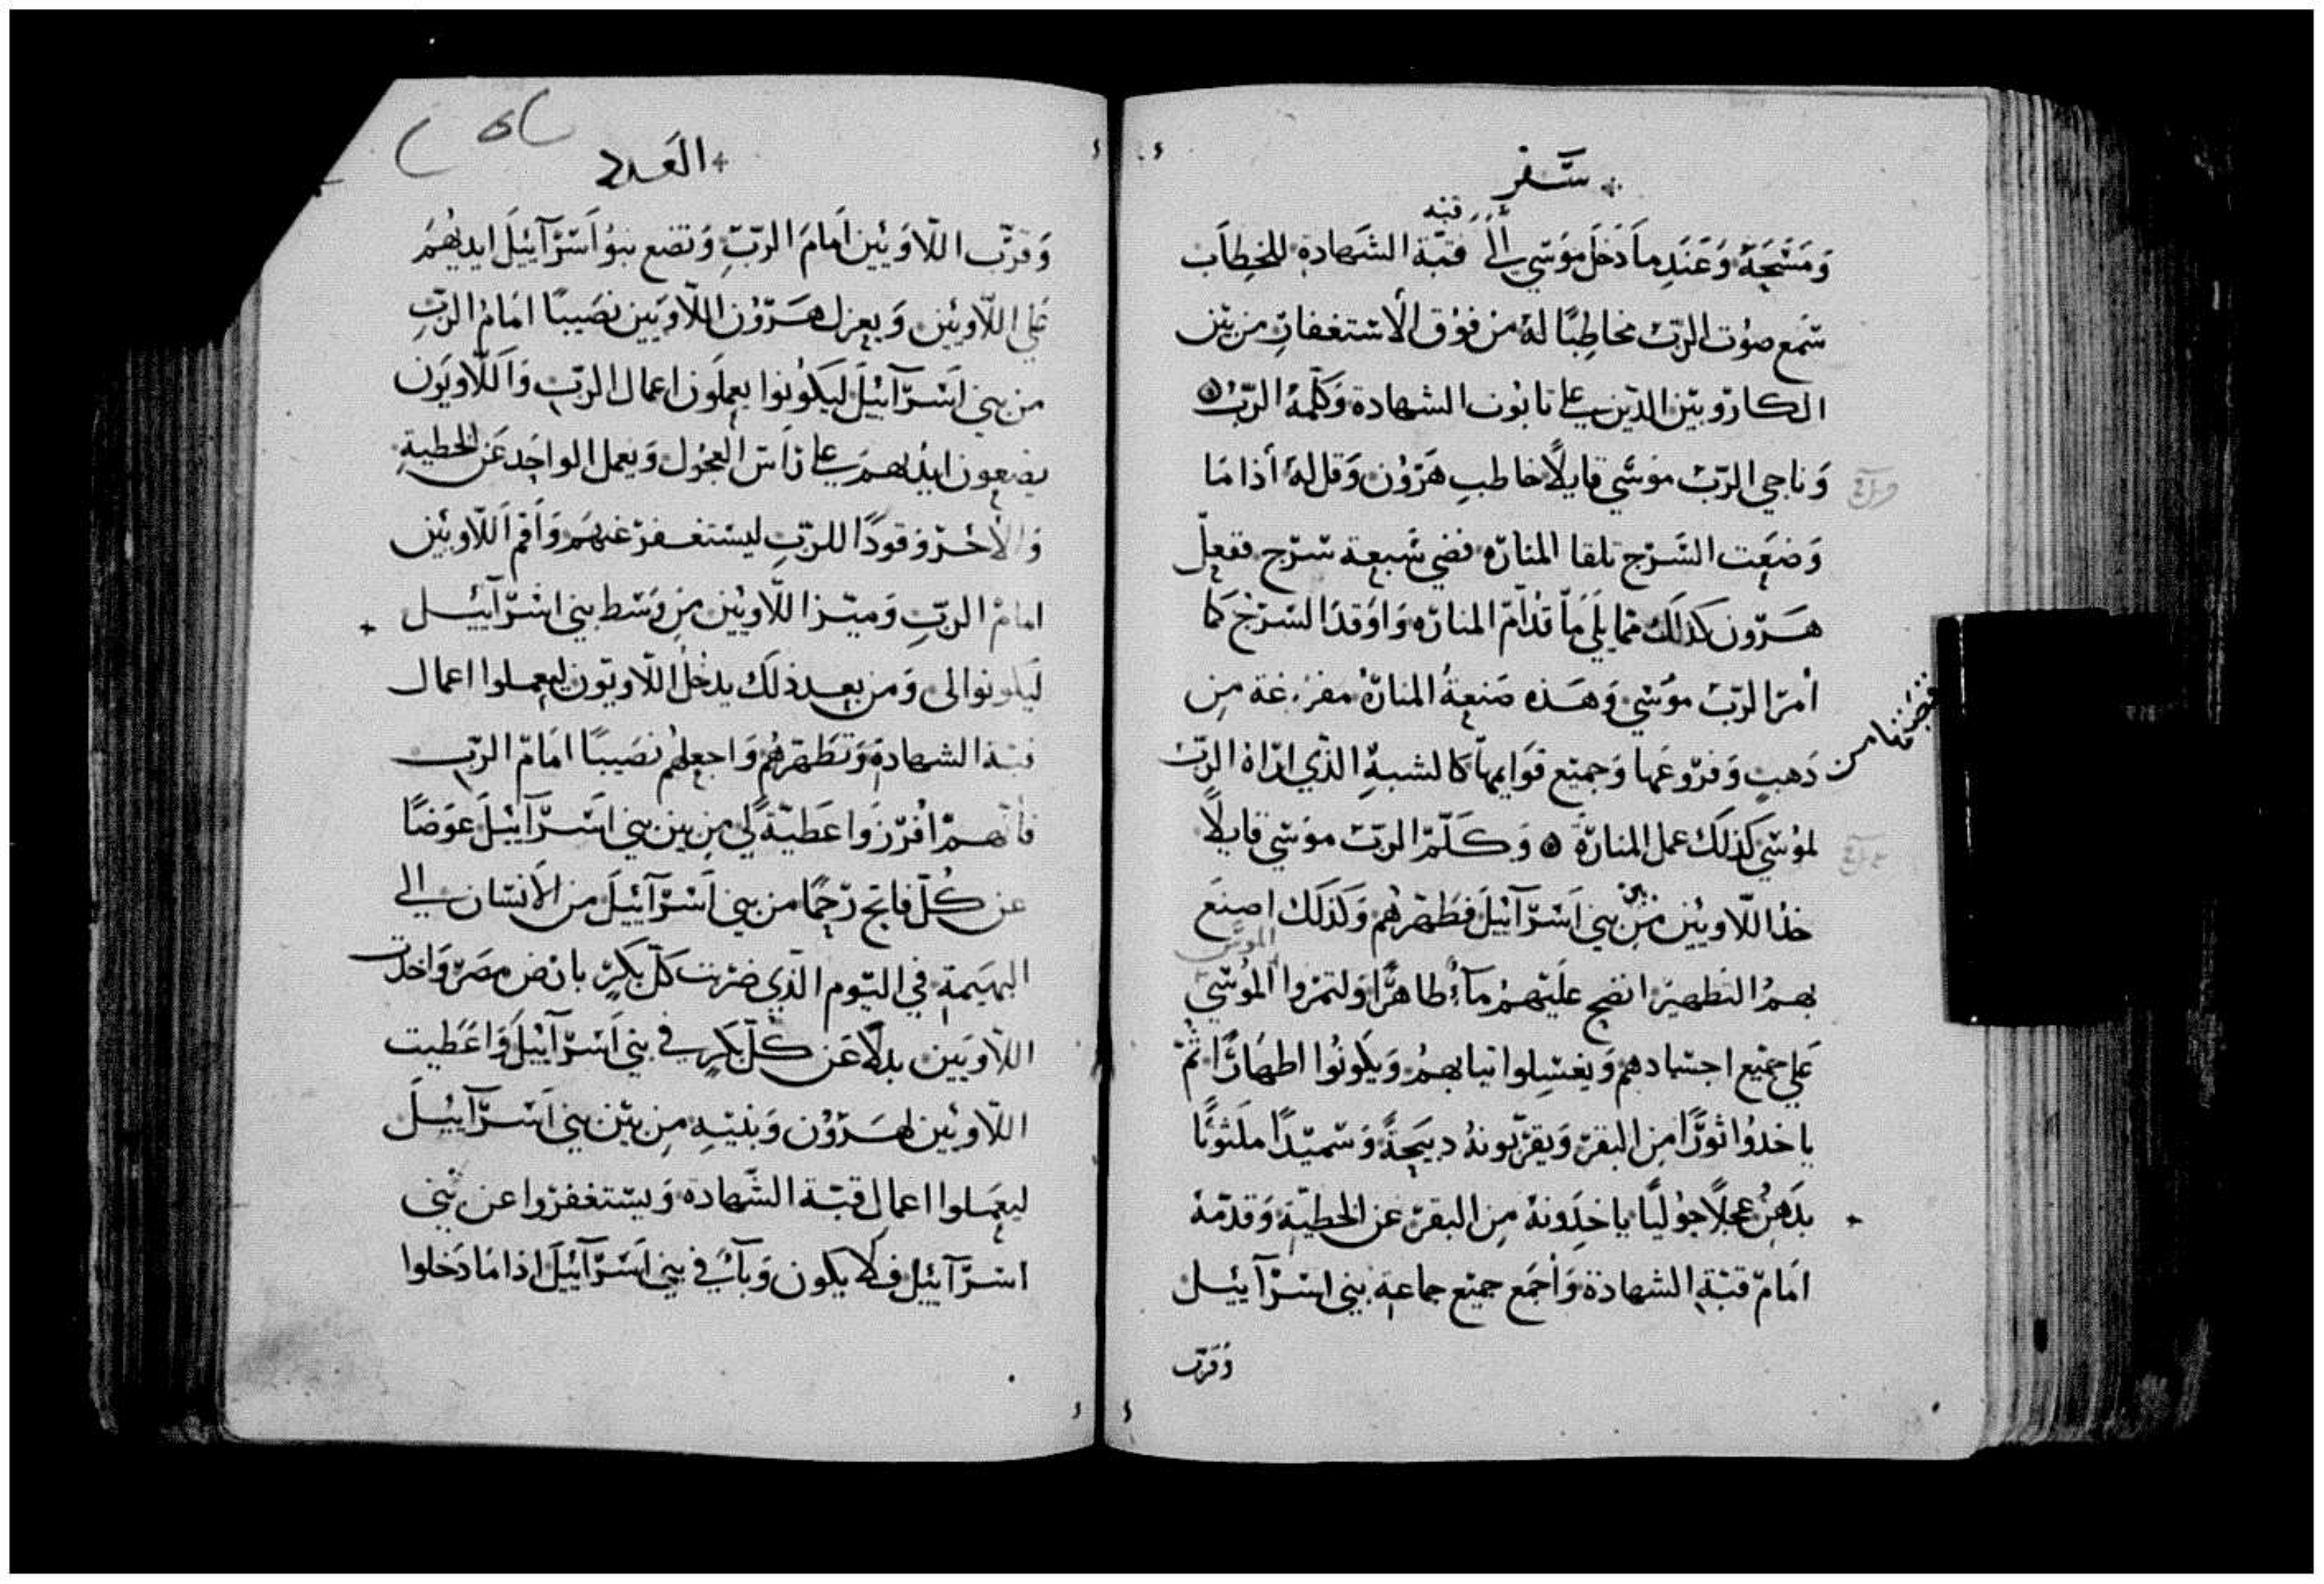 سفر
قبه
وَمَسَحَهُ وَعَندِ مَا دَخَلَ موُسَي الي قبّة الشَهادةِ للخِطاَب
سَمع صوُت الربّ مخاطِبًا لهُ من فوُق الاستغفارِ من بَين
الكاروبَين الذين علي تابوُت الشهادة وَكلّمهُ الربّ
وَناجي الربّ موُسَي قايلاً خاطب هَروُن وَقل لهُ أذا مَا
وَضعَت السَرج تلقا المنارَه فضي سَبعة سَرج ففعل
هَرون كذلك مما يلَي مَا قدّام المنارَه وَاوقد السَرج كما
أمر الربّ موُسَي وَهَذه صَنعةُ المنارَهُ مفرغة مِن
ذهبٍ وَفروعَها وَجميع قوَايمها كالشبهِ الذي ارَاهُ الربّ
لموُسَي كذلك عمل المنارَة وَكَلّم الربّ موَسَي قايلاً
خذ اللاويَين من بين بني اَسَرآئيلَ فطَهّرهُم وَكذلك اصنَع
بهمُ التطهير انضح علَيهمُ مآءً طاهرًا وَلتمرُوا الموُسَي
عَلي جميع اجسَادهم وَيغسِلوا تيابهمُ وَيكونُوا اطهَارًا ثُمّ
ياخدُوا ثورًا مِن البقر وَيقرّبونهُ دبيَحةً وَسَميدًا ملثوتًا
بدَهنٍ عجلاً حوُليًا ياخذِونهُ مِن البقر عن الخطيّةِ وَقدّمهُ
امَام قبّةِ الشهادة وَأجمَع جميع جماعة بني اسَرآييل
وَقرّب
العَدد
وَقرّب اللاوَيَين اَمامَ الربِّ وَتضع بنوُ اَسَرآييلَ ايديهُمَ
عَلي اللاويَين وَيعزل هَروُن اللاوَيين نصَيبًا امَامُ الربِّ
من بني اَسَرآئيلَ ليكوُنوا يعملَون اعمال الربّ وَاللاويَون
يضعون ايديهمَ علي رَاسَ العجوُل وَيعمل الواحِد عَن الخطيةِ
وَالأخر وَقودًا للربّ ليستغفر عنهمُ وَأقم اَللاويَين
امامُ الربِّ وَميّز اللاويَين مِن وَسَط بني اسَرآئيل
ليكونوا لي وَمن بعد ذلك يدخُل اللاويَون ليعملوا اعمال
قبّة الشهادة وَتطَهرهُم وَاجعلهُم نصَيبًا امَام الربّ
فأنهمّ افرَزوَا عَطيّةً لي مِن بين بني اسَرآئيلَ عوَضًا
عن كُلّ فاتح رَحِمًا من بني اَسَرآئيلَ من الأنسَان الي
البهَيمة في اليَوم الذي ضرَبت كلّ بكرٍ بارَض مصَر وَاخدَت
اللاوَيَين بدلاً عَن كلّ بكرٍ في بني اَسَرآئيلَ وَاعَطيت
اللاويَين لهَروُن وَبنيَهِ مِن بَين بني اَسَرآييلَ
ليعَملوا اعمال قبّة الشَهادة وَيستغفرَوا عن بَني
اسَرآييل فلا يكون وَبآءً في بني اَسَرآئيلَ اذا مَا دَخلوا